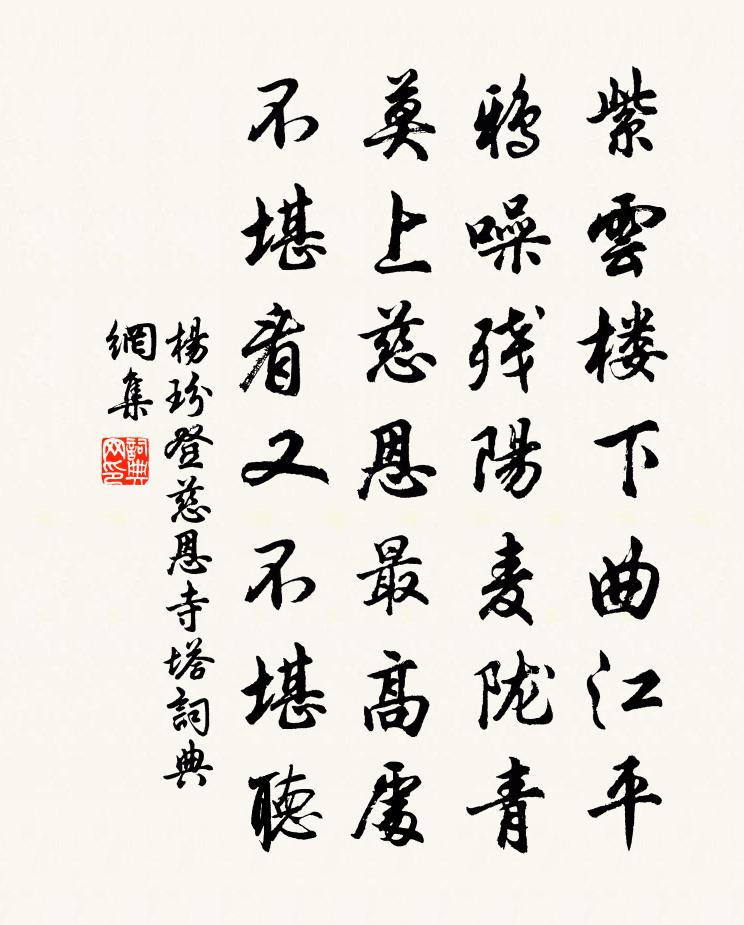 紫雲楼下曲江平
鴉噪残陽麦陇青
莫上慈恩最高處
不堪看又不堪聽
楊玢登慈恩寺塔詞典
網集
詞典網印